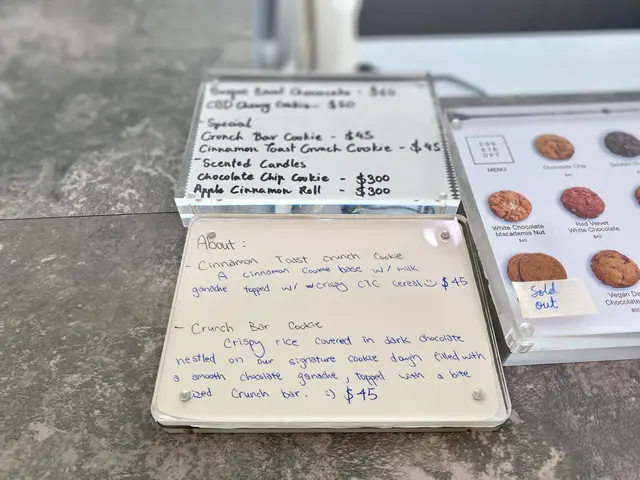 Burnt Basal Cheesecake - $60
CBD Chewy Cookie - $50
- Special
Crunch Bar Cookie - $45
Cinnamon Toast Crunch Cookie - $45
- Scented Candles
Chocolate Chip Cookie - $300
Apple Cinnamon Roll - $300
About :
- Cinnamon Toast crunch Cookie
A cinnamon cookie base w/ milk
ganache topped w/ crispy CTC cereal :) $45
- Crunch Bar Cookie
Crispy rice covered in dark chocolate
nestled on our signature cookie dough filled with
a smooth chocolate ganache, topped with a bite
sized Crunch bar. :) $45
COO
KIE
DPT
MENU
Chocolate Chip
Double
White Chocolate
Macadamia Nut
$40
Red Velvet
White Chocolate
$40
Sold
out
Vegan Da
Chocolate